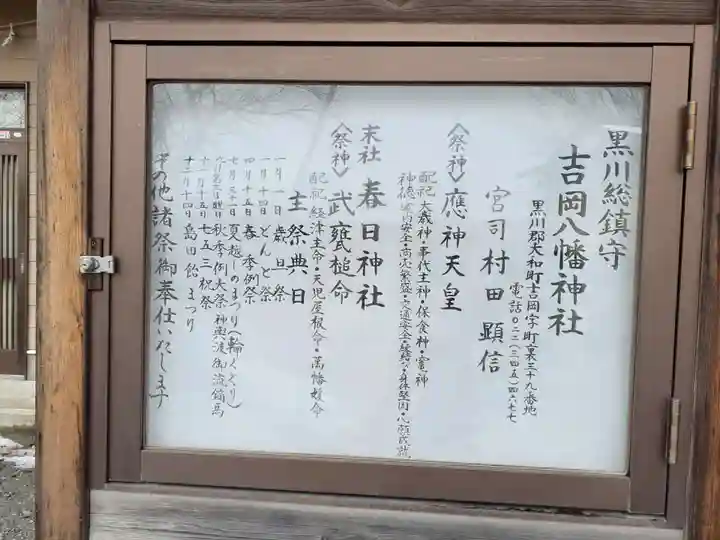 黒川総鎮守
吉岡八幡神社
黒川郡大和町吉岡字町裏三十九番地
電話〇二二(三四五)四六七七
宮司 村田顕信
〈祭神〉應神天皇
配祀 大歳神・事代主神・保食神・竃神
神徳 家内安全・商売繁盛・交通安全・身体堅固・心願成就
末社 春日神社
〈祭神〉武甕槌命
配祀 経津主命・天児屋根命・萬幡姫命
主祭典日
一月一日 歳旦祭
一月十四日 どんと祭
四月十五日 春季例祭
七月三十一日 夏越しのまつり(輪くぐり)
秋季例大祭 神輿渡御 流鏑馬
十一月十五日 七五三祝祭
十二月十四日 島田飴まつり
その他諸祭御奉仕いたします